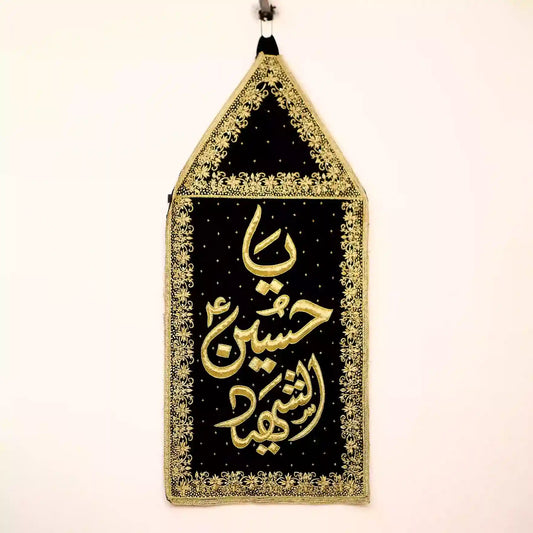 يَا
حُسَيْن ؑ
الشهيد